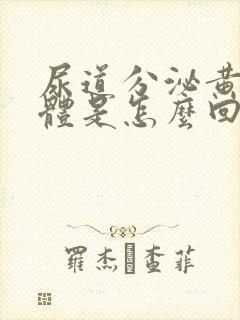 尿道分泌黃
體是怎麼回
羅杰 查菲